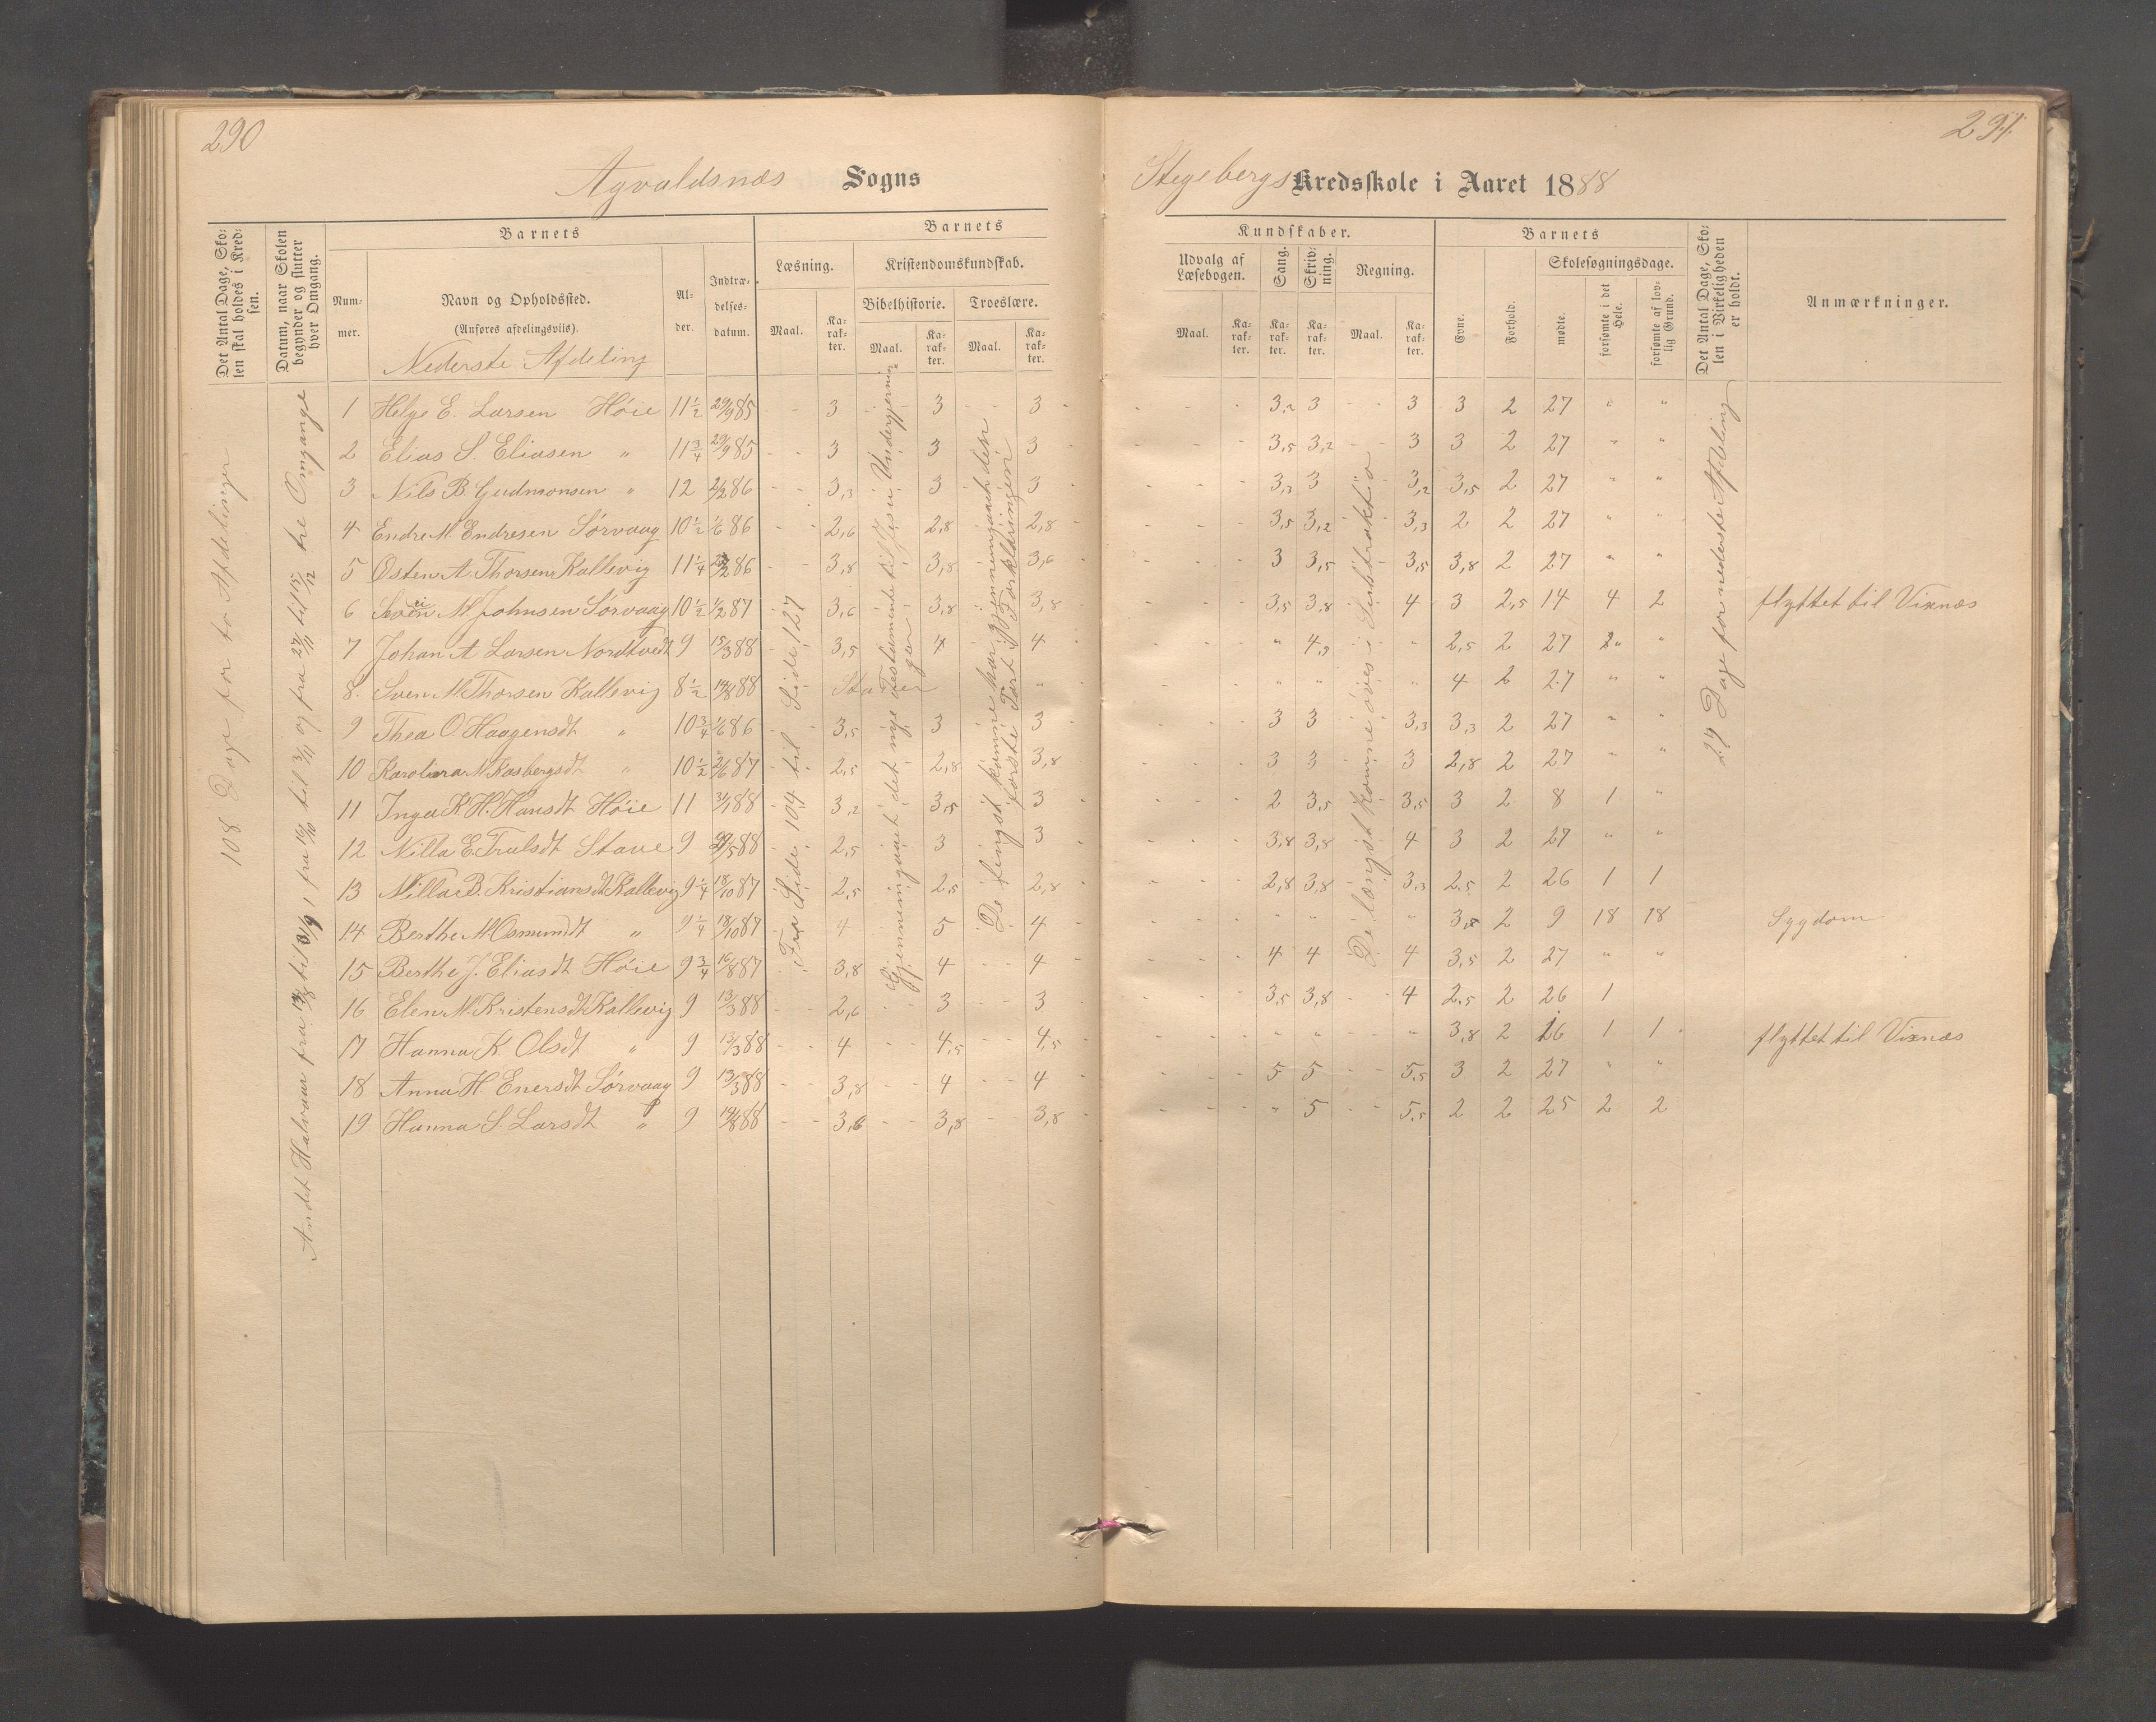 290
291.
Agvaldsnæs Sogns
Stegebergs Kredsskole i Aaret 1888
Det Antal Dage, Sko-
len skal holdes i Kred-
sen.
Datum, naar Skolen
begynder og slutter
hver Omgang.
Barnets
Num-
mer.
Navn og Opholdssted.
(Anføres afdelingsviis).
Nederste Afdeling
Al-
der.
Indtræ-
delses-
datum.
Barnets
Læsning.
Maal.
Ka-
rak-
ter.
Kristendomskundskab.
Bibelhistorie.
Maal.
Ka-
rak-
ter.
Troeslære.
Maal.
Ka-
rak-
ter.
Kundskaber.
Udvalg af
Læsebogen.
Maal.
Ka-
rak-
ter.
Sang.
Ka-
rak-
ter.
Skriv-
ning.
Ka-
rak-
ter.
Regning.
Maal.
Ka-
rak-
ter.
Barnets
Evne.
Forhold.
Skolesøgningsdage.
mødte.
forsømte i det
Hele.
forsømte af lov-
lig Grund.
Det Antal Dage, Sko-
len i Virkeligheden
er holdt.
Anmærkninger.
108 Dage for to Afdelinger
Andet Halvaar fra til fra 16/10 til 3/11 og fra 27/11 til 15/12 tre Omgange
Fra Side 104 til Side 127
Gjennemgaaet det nye Testamente til Jesu Undergjernin-
ger
De længst komne har gjennemgaaet den
første Part i Forklaringen
De længst komne øves i Subtraktion
27 Dage for nederste Afdeling
1 Helge E. Larsen Høie 11 1/2 29/9 85 - - 3 - - 3 - - 3 - - - - 3,2 3 - - 3 3 2 27 " "
2 Elias S. Eliasen " 11 3/4 29/9 85 - - 3 3 3 - - - - 3,5 3,2 - - 3 3 2 27 " "
3 Nils B. Gudmonsen " 12 2/2 86 - - 3,3 3 3 - - - 3,3 3 - 3,2 3,5 2 27 " "
4 Endre M. Endresen Sørvaag 10 1/2 1/6 86 - - 2,6 2,8 2,8 - - - 3,5 3,2 - 3,3 2 2 27 " "
5 Østen A. Thorsen Kallevig 11 1/4 2 86 - - 3,8 3,8 3,6 - - - 3 3,5 3,5 3,8 2 27 " "
6 Sven M. Johnsen Sørvaag 10 1/2 1/2 87 3,6 3,8 3,8 - - - 3,5 3,8 4 3 2,5 14 4 2 flyttet til Vixnæs
7 Johan A. Larsen Nordtvedt 9 15/3 88 3,5 4 4 - - - " 4,5 " 2,5 2 27 " "
8. Sven M. Thorsen Kallevig 8 1/2 14/8 88 Staver " - - - " " " 4 2 27 " "
9 Thea O. Haagensdt " 10 3/4 1/6 86 3,5 3 3 - - - 3 3 3,3 3,3 2 27 " "
10 Karolina N. Kosbergsdt " 10 1/2 2/6 87 2,5 2,8 3,8 - - - 3 3 3 2,8 2 27 " "
11 Inga K. H. Hansdt Høie 11 3/1 88 3,2 3,5 3 - - - 2 3,5 3,5 3 2 8 1 "
12 Nilla E. Trulsdt Stave 9 29/5 88 2,5 3 3 - - - 3,8 3,8 4 3 2 27 " "
13 Nilla B. Kristiansdt Kallevig 9 1/4 18/10 87 2,5 2,5 2,8 - - - 2,8 3,8 3,3 2,5 2 26 1 1
14 Berthe M. Osmundt " 9 1/4 18/10 87 4 5 4 - - - " " " 3,8 2 9 18 18 Sygdom
15 Berthe J. Eliasdt Høie 9 3/4 16/8 87 3,8 4 4 - - - 4 4 4 3,5 2 27 " "
16 Elen M. Kristensdt Kallevig 9 13/3 88 - - 2,6 3 3 - - - 3,5 3,8 - - 4 2,5 2 26 1
17 Hanna K. Olsdt " 9 13/3 88 - - 4 - - 4,5 - - 4,5 - - - " " " 3,8 2 16 1 1 flyttet til Vixnæs
18 Anna H. Enersdt Sørvaag 9 13/3 88 - - 3,8 - - 4 - - 4 - - - 5 5 - - 5,5 3 2 27 " "
19 Hanna S. Larsdt " 9 14/8 88 - - 3,6 - - 3,8 - - 3,8 - - - " 5 - - 5,5 2 2 25 2 2